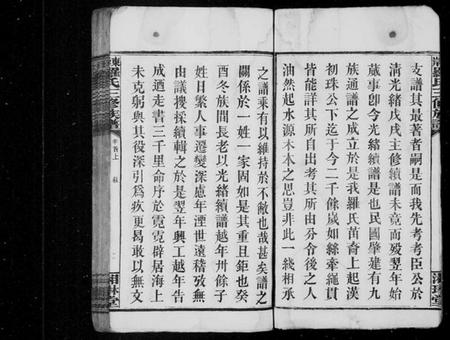 支譜其最著者嗣是而我先考考臣公於
清光緒戊戌主修續譜未竟而歿翌年始
蕆事卽今光緒續譜是也民國肇建有九
族通譜之成立於是我羅氏苗裔上起漢
初珠公下迄于今二千餘歲如絲牽繩貫
皆能詳其所自出考其所由分合後之人
油然起水源木本之思豈非此一綫相承
之譜乘有以維持於不敝也哉甚矣譜之
關係於一姓一家固如是其重且鉅也癸
酉冬族間長老以光緒續譜越年卅餘子
姓日繁人事遷變深慮年湮世遠稽攷無
由議搜採續輯之於是翌年興工越年告
成迺走書三千里命序於霓霓僻居海上
未克躬與其役深引爲疚更曷敢以無文
羅氏三修族譜
卷首上